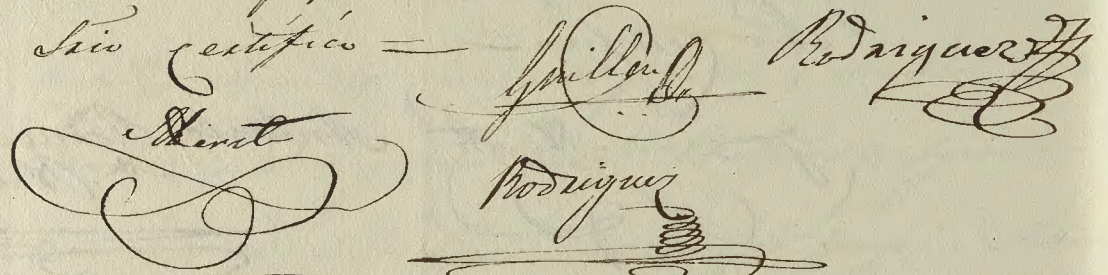 Srio certifíco =
Guillen Rodriguez
Rodriguez